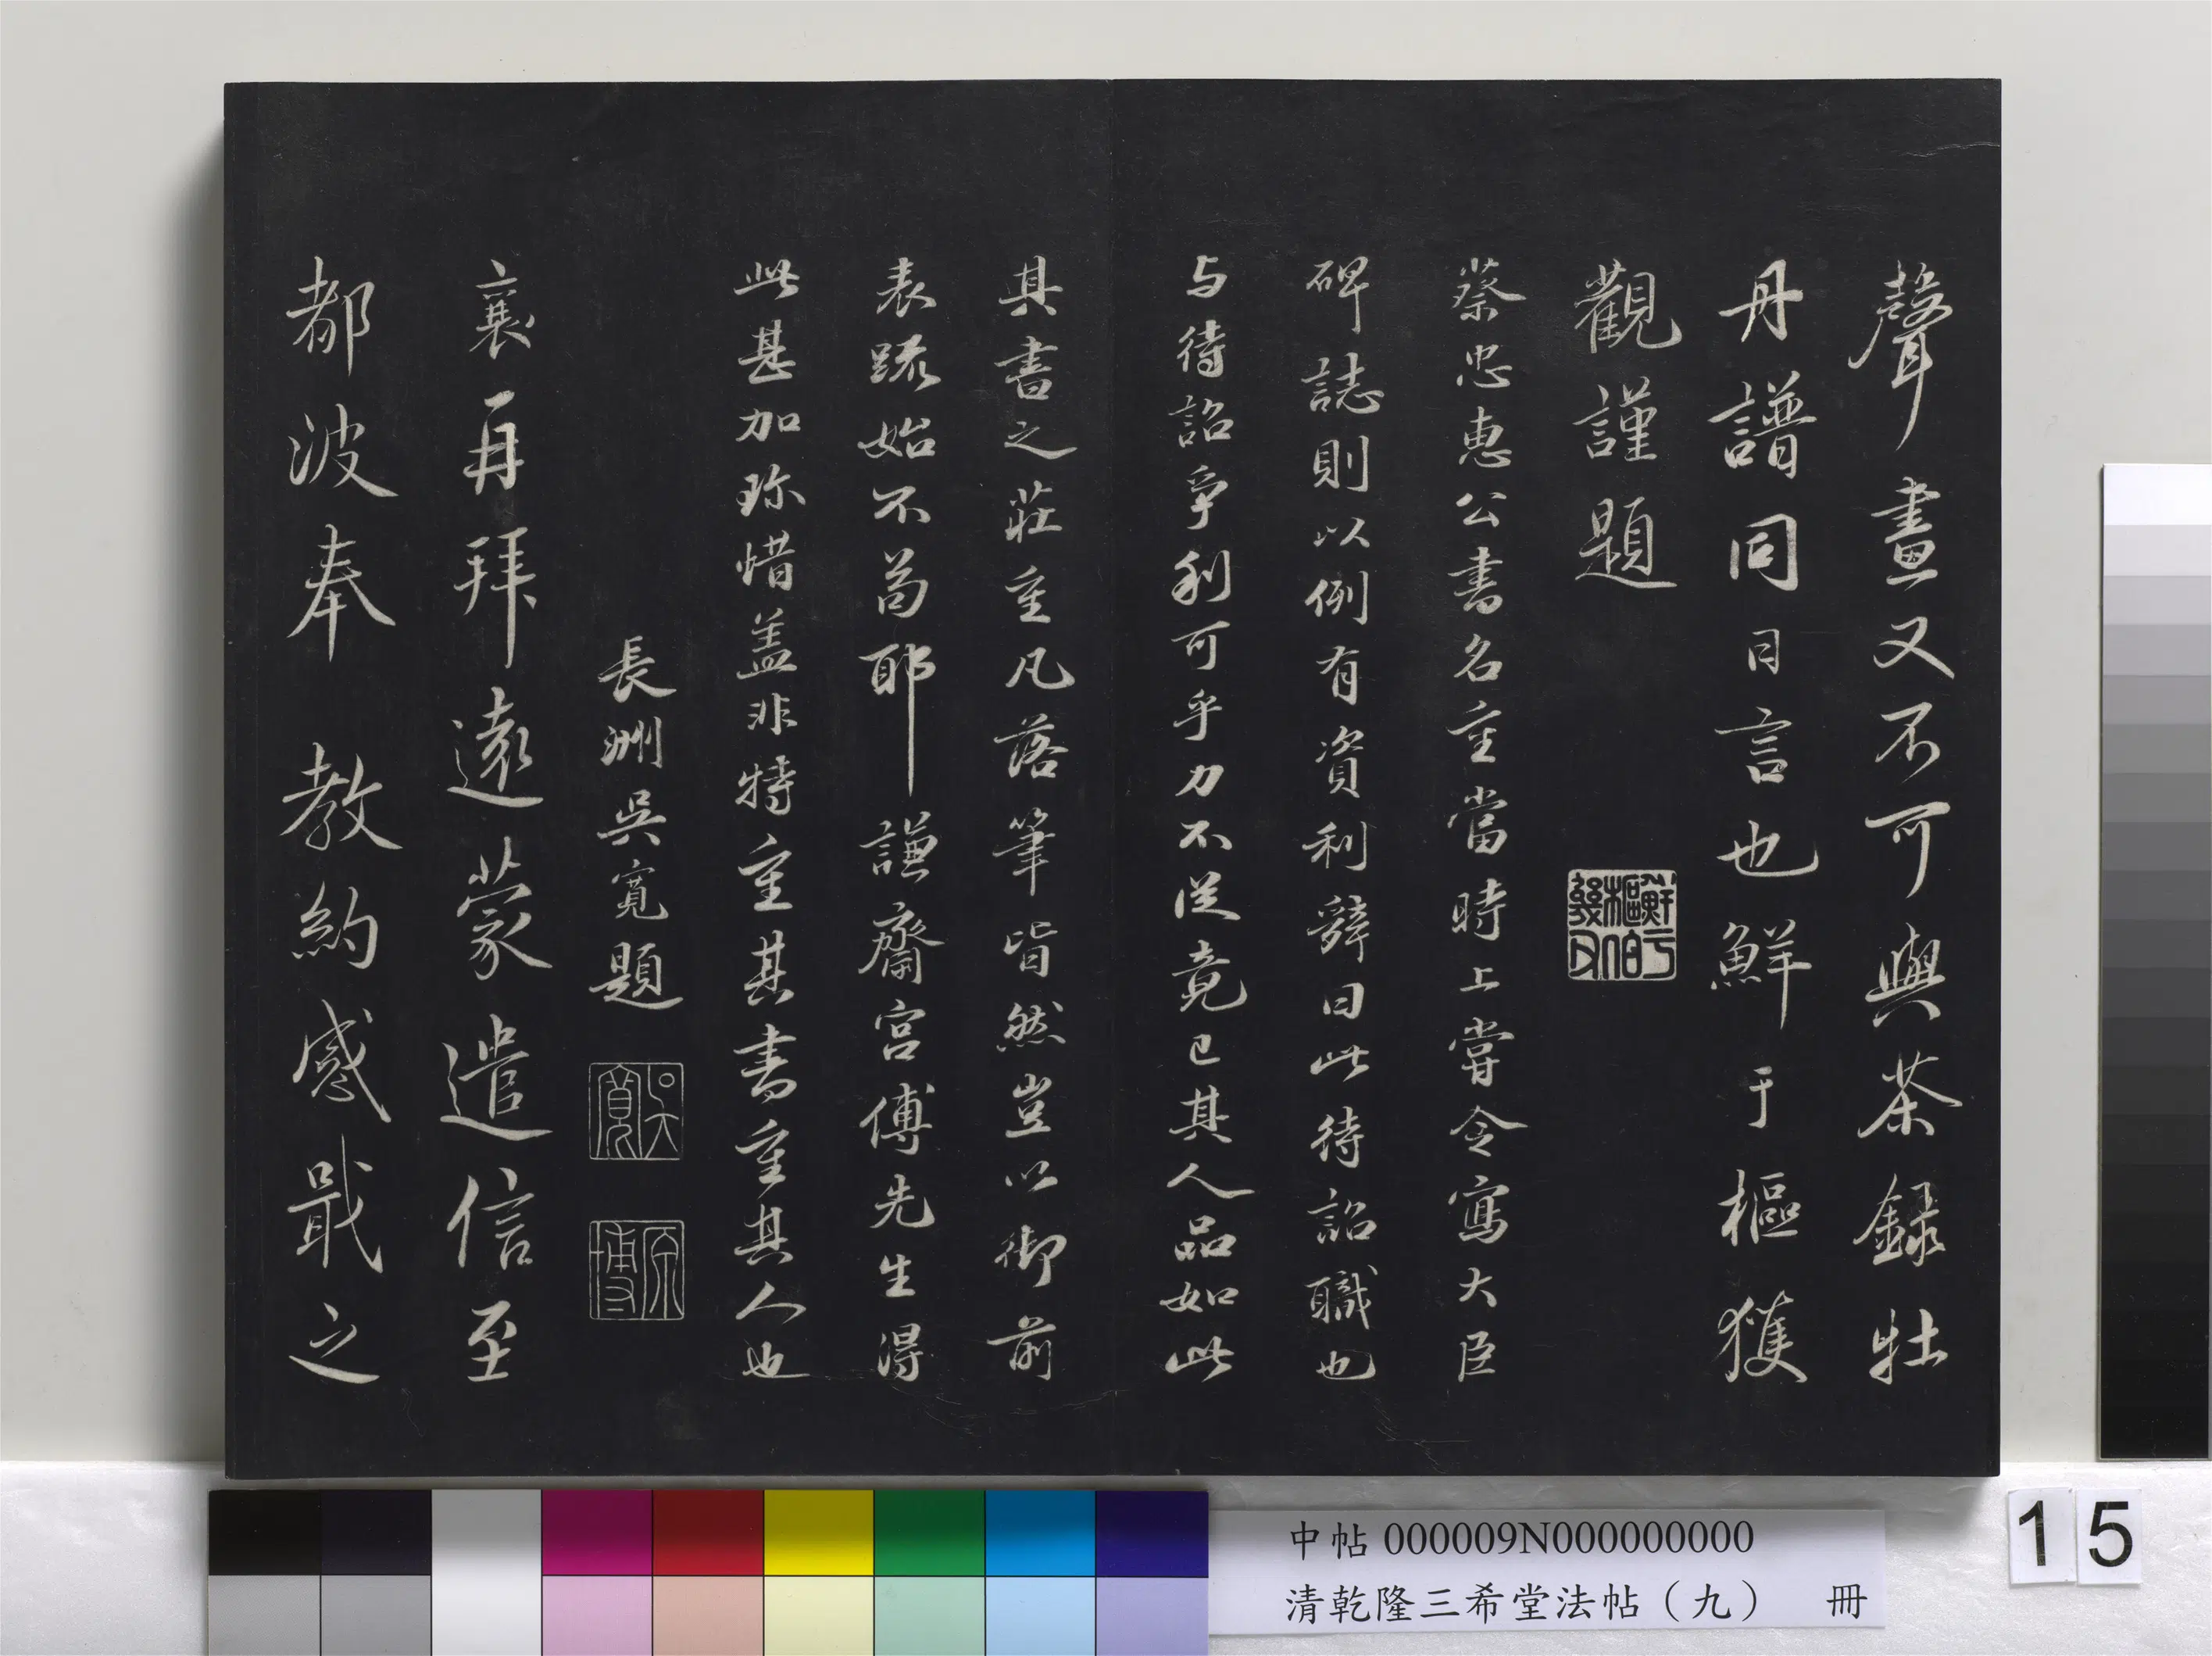 聲畫又不可與茶録牡
丹譜同日言也鮮于樞獲
觀謹題
蔡忠惠公書名重當時上嘗令寫大臣
碑誌則以例有資利辭曰此待詔職也
与待詔爭利可乎力不從竟已其人品如此
其書之莊重凡落筆皆然豈以御前
表疏始不苟耶謙齋宫傅先生得
此甚加珎惜盖非特重其書重其人也
長洲吳寬題
吳寬
原博
襄再拜遠蒙遣信至
都波奉 教約感戢之
中帖 000009N000000000
清乾隆三希堂法帖（九） 冊
15